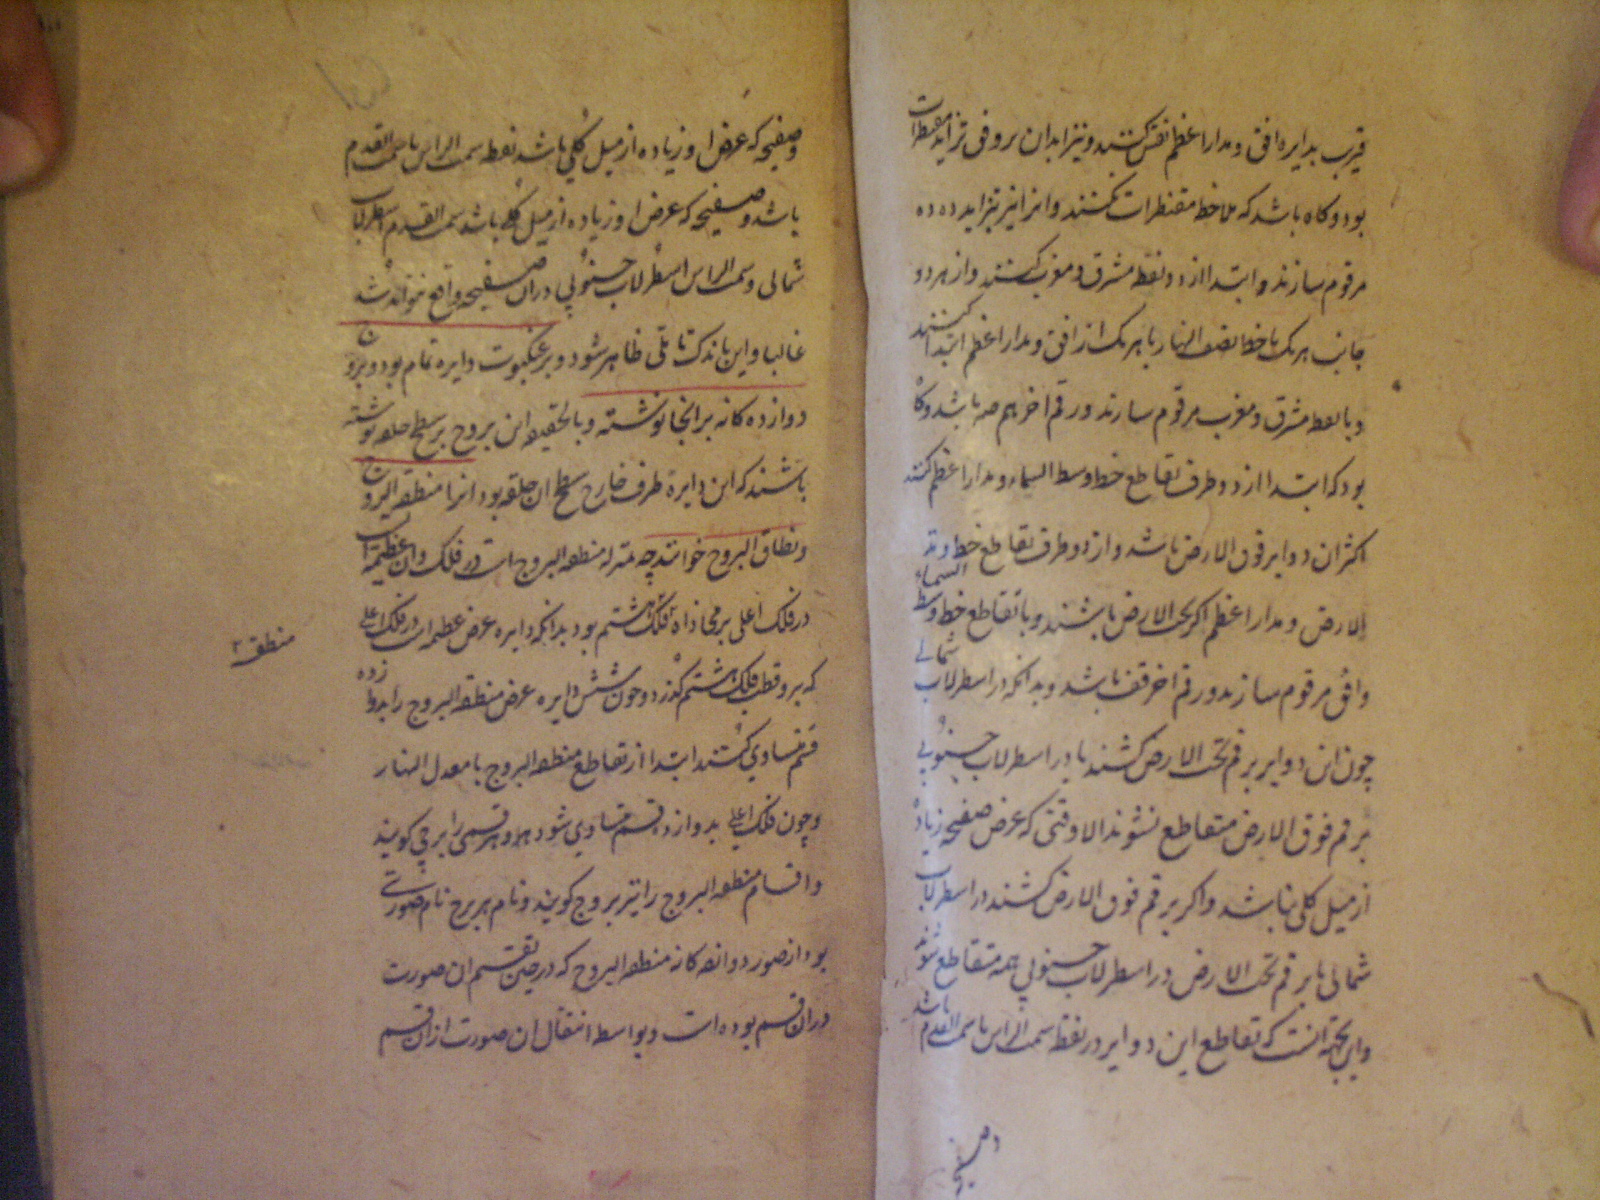 قریب بدایره افق و مدار اعظم نقش کنند و تزاید ان بر وفق تزاید مقنطرات
بود و کاه باشد که ملاخط مقنطرات کنند و انرا نیز بتزاید ده ده
مرقوم سازند و ابتدا از دو نقطه مشرق و مغرب کنند و از هر دو
جانب هر یک با خط نصف النهار یا هر یک از افق و مدار اعظم ابتدا کنند
و با نقطه مشرق و مغرب مرقوم سازند و رقم اخر هم صه باشد و کا
بود که ابتدا از دو طرف تقاطع خط وسط السماء و مدار اعظم کنند
اکثر ان دوایر فوق الارض باشد و از دو طرف تقاطع خط وتد
الارض و مدار اعظم اکر تحت الارض باشند و با تقاطع خط وسط السماء
وافق مرقوم سازند و رقم اخر قف باشد و بدانکه در اسطرلاب شمالی
چون این دوایر برقم تحت الارض کشند یا در اسطرلاب جنوبی
برقم فوق الارض متقاطع نشوند الا وقتی که عرض صفیحه زیاد
از میل کلی نباشد و اکر برقم فوق الارض کشند در اسطرلاب
شمالی یا برقم تحت الارض در اسطرلاب جنوبی همه متقاطع شوند
و این بجهة انست که تقاطع این دوایر در نقطه سمت الراس یا سمت القدم باشد
وصفیحه
وصفیحه که عرض او زیاده از میل کلی باشد نقطه سمت الراس یا سمت القدم
باشد و صفیحه که عرض او زیاده از میل کلی باشد سمت القدم اسطرلاب
شمالی و سمت الراس اسطرلاب جنوبی دران صفیحه واقع نتواند شد
غالبا و این باندک تاملی ظاهر شود و بر عنکبوت دایره تمام بود و بروج
دوازده کانه بر انجا نوشته و بالحقیقه این بروج بر سطح حلقه نوشته
باشند که این دایره طرف خارج سطح ان حلقه بود انرا منطقه البروج
و نطاق البروج خوانند چه بمنزله منطقه البروج است در فلک و ان عظیمه است
در فلک اعلی بر محاذاة فلک هشتم بود بدانکه دایره عرض عظیمه است در فلک اعلی
که بر دو قطب فلک هشتم کذرد و چون شش دایره عرض منطقه البروج را بدوازده
قسم متساوی کنند ابتدا از تقاطع منطقه البروج با معدل النهار
و چون فلک اعلی بدوازده قسم متساوی شود و هر قسمی را برجی کویند
و اقسام منطقه البروج را نیز بروج کویند و نام هر برج نام صورتی
بود از صور دوازده کانه منطقه البروج که در حین تقسیم ان صورت
دران قسم بوده است و بواسطه انتقال ان صورت از ان قسم
منطقه